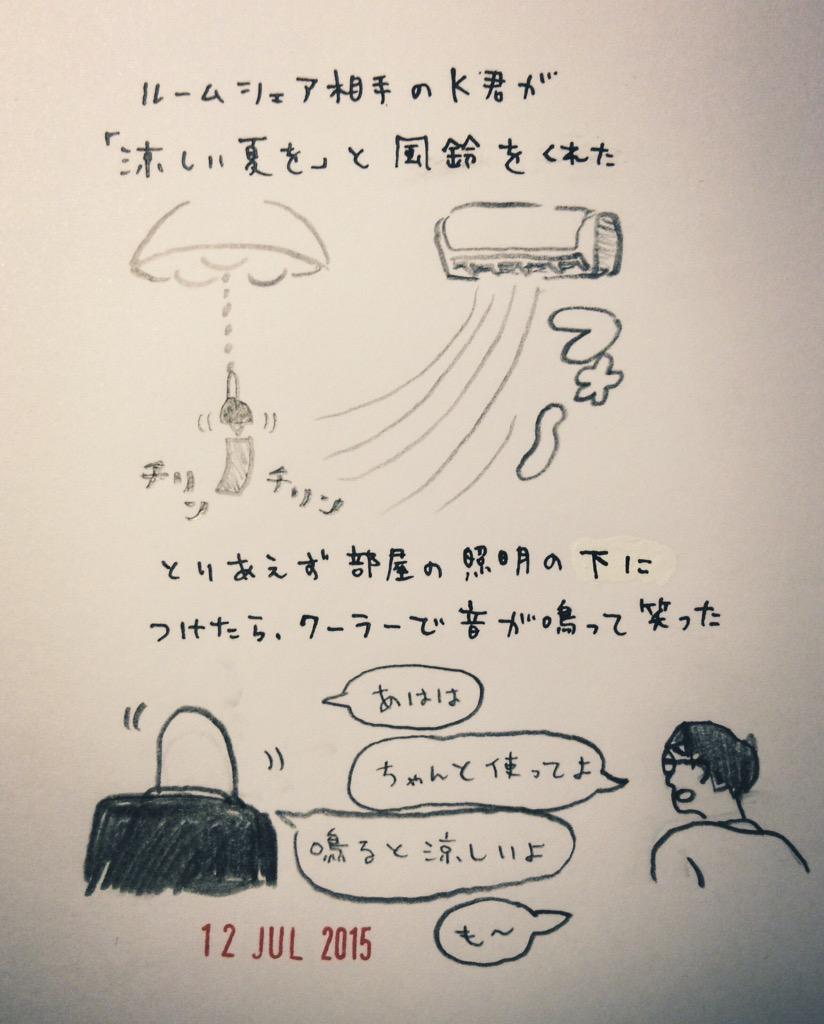 ルームシェア相手のK君が
「涼しい夏を」と風鈴をくれた
チリン
チリン
とりあえず部屋の照明の下に
つけたら、クーラーで音が鳴って笑った
あはは
ちゃんと使ってよ
鳴ると涼しいよ
も〜
12 JUL 2015